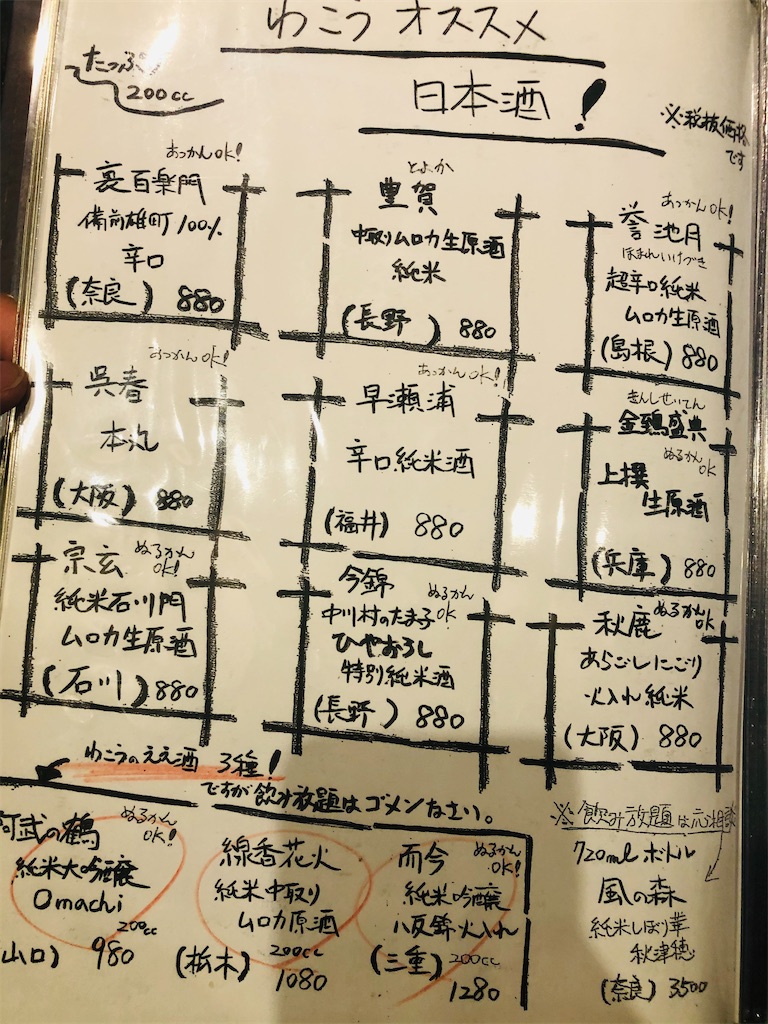 わこう オススメ
たっぷり
200cc
日本酒!
※税抜価格
です
あっかんOK!
裏百楽門
備前雄町100%
辛口
(奈良) 880
とよか
豊賀
中取りムロカ生原酒
純米
(長野) 880
あっかんOK!
誉池月
ほまれいけづき
超辛口純米
ムロカ生原酒
(島根) 880
あっかんOK!
呉春
本丸
(大阪) 880
あっかんOK!
早瀬浦
辛口純米酒
(福井) 880
きんしせいてん
金鵄盛典
ぬるかん
OK
上撰
生原酒
(兵庫) 880
宗玄
ぬるかん
OK!
純米石川門
ムロカ生原酒
(石川) 880
今錦
ぬるかん
OK
中川村のたま子
ひやおろし
特別純米酒
(長野) 880
秋鹿
ぬるかん
OK
あらごしにごり
火入れ純米
(大阪) 880
わこうのええ酒 3種!
ですが飲み放題はゴメンなさい。
阿武の鶴
ぬるかん
OK!
純米大吟醸
Omachi
200cc
山口) 980
線香花火
純米中取り
ムロカ原酒
200cc
(栃木) 1080
而今
ぬるかん
OK!
純米吟醸
八反錦火入れ
(三重) 200cc
1280
※飲み放題は応相談
720mlボトル
風の森
純米しぼり華
秋津穂
(奈良) 3500